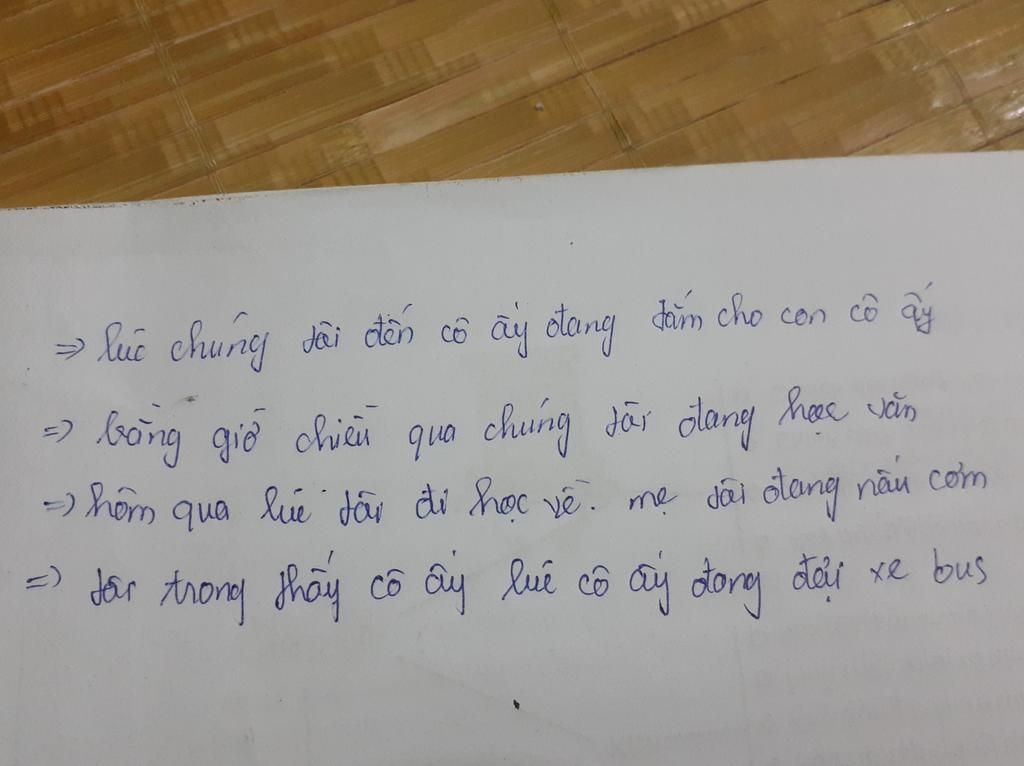 => lúc chúng tôi đến cô ấy đang tắm cho con cô ấy
=> bằng giờ chiều qua chúng tôi đang học văn
=> hôm qua lúc tôi đi học về. mẹ tôi đang nấu cơm
=> tôi trong thấy cô ấy lúc cô ấy đang đợi xe bus